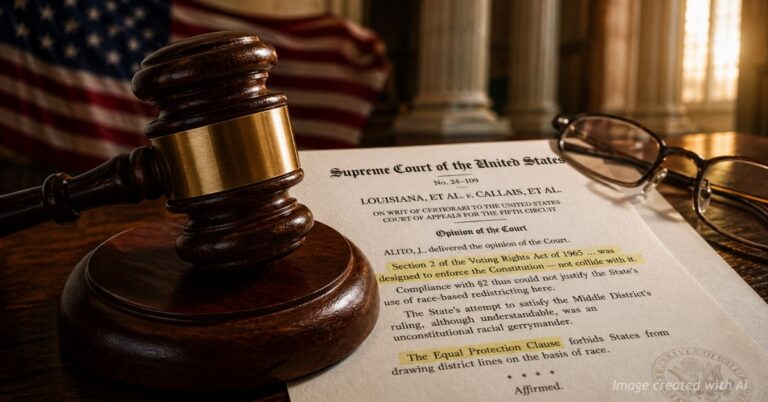 Supreme Court of the United States
No. 24–109
LOUISIANA, ET AL. v. CALLAIS, ET AL.
ON WRIT OF CERTIORARI TO THE UNITED STATES
COURT OF APPEALS FOR THE FIFTH CIRCUIT
Opinion of the Court
ALITO, J., delivered the opinion of the Court.
Section 2 of the Voting Rights Act of 1965 ... was
designed to enforce the Constitution — not collide with it.
Compliance with §2 thus could not justify the State's
use of race-based redistricting here.
The State's attempt to satisfy the Middle District's
ruling, although understandable, was an
unconstitutional racial gerrymander.
The Equal Protection Clause forbids States from
drawing district lines on the basis of race.
* * * *
Affirmed.
Image created with Ai